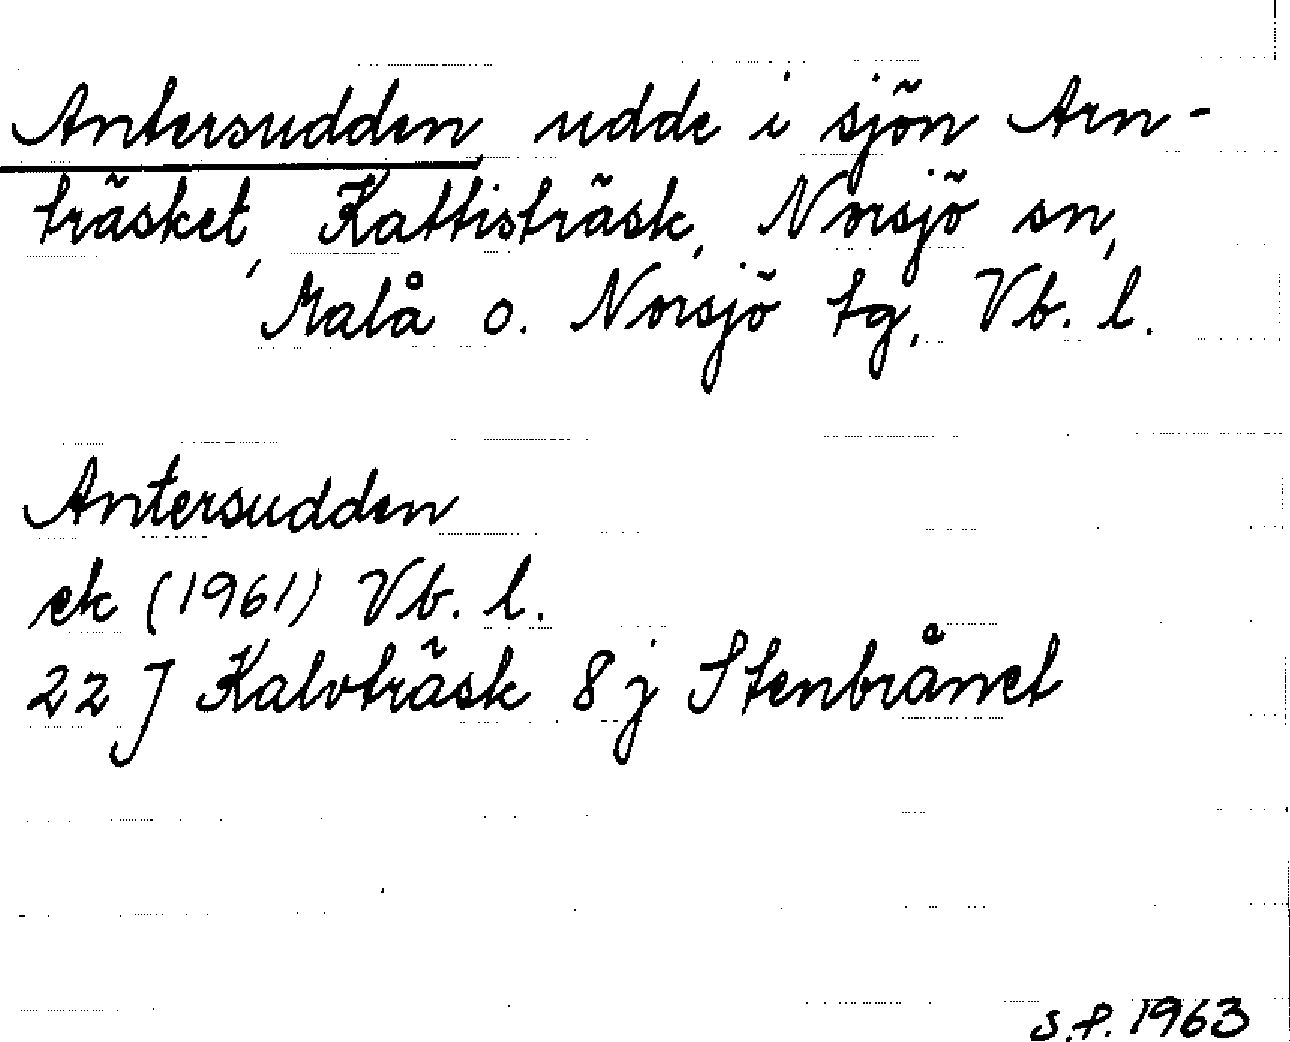 Antersudden udde i sjön Arn-
träsket, Kattisträsk, Norsjö sn,
Malå o. Norsjö tg, Vb. l.
Antersudden
ek (1961) Vb. l.
22 J Kalvträsk 8 j Stenbrånet
s.f. 1963